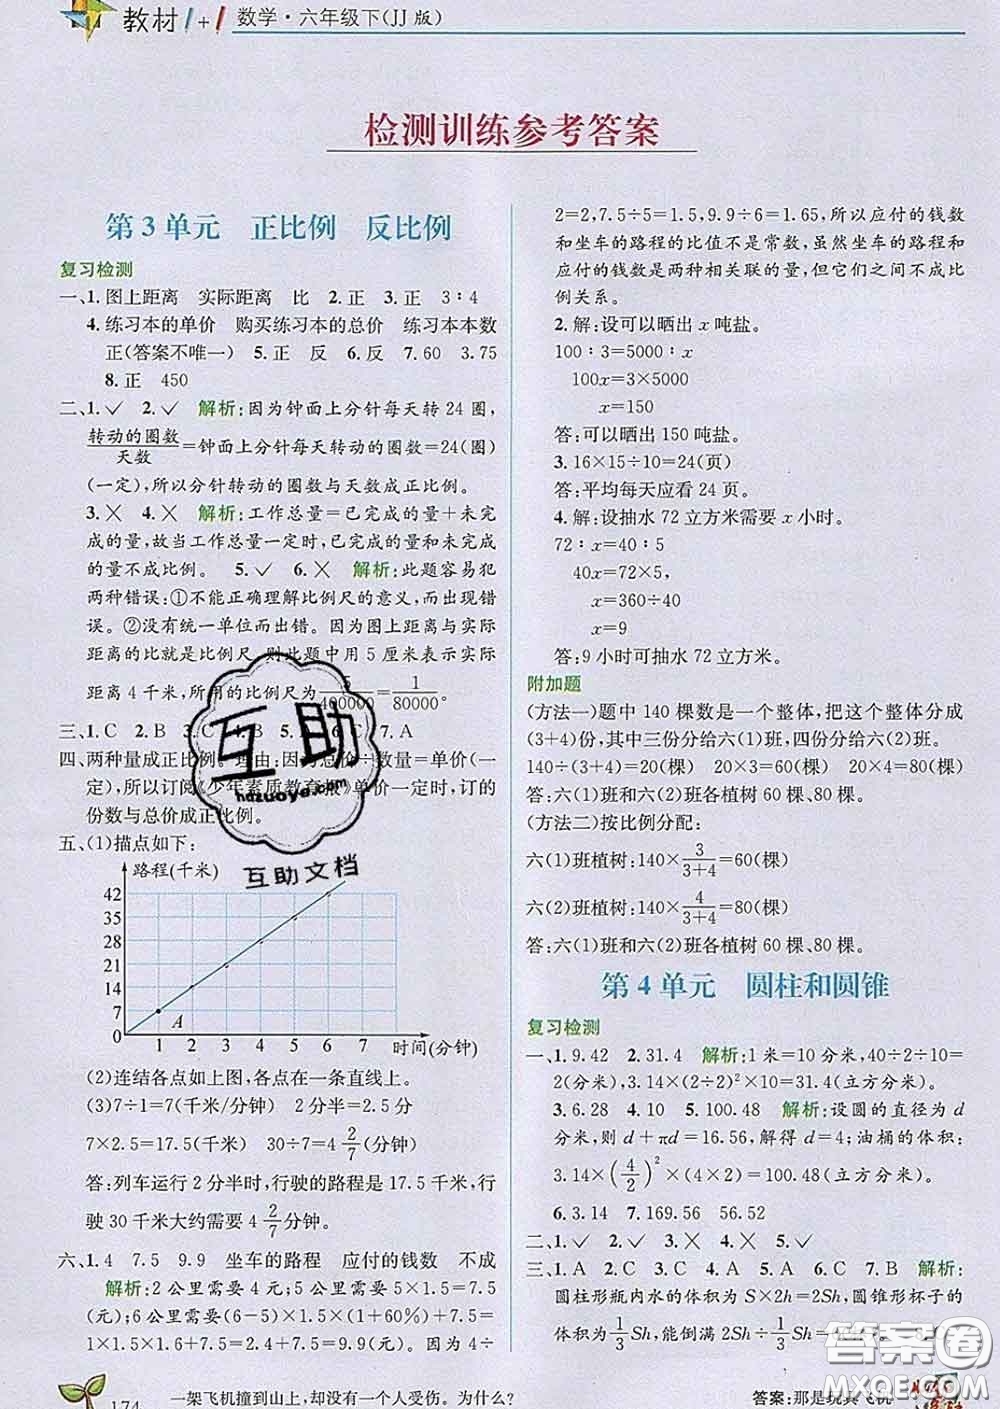 教材1+1 数学·六年级下(JJ版)
检测训练参考答案
第3单元 正比例 反比例
复习检测
一、1.图上距离 实际距离 比 2.正 3.正 3∶4
4.练习本的单价 购买练习本的总价 练习本本数
正(答案不唯一) 5.正 反 6.反 7.60 3.75
8.正 450
二、1.✓ 2.✓ 解析:因为钟面上分针每天转24圈,
转动的圈数/天数=钟面上分针每天转动的圈数=24(圈)
(一定),所以分针转动的圈数与天数成正比例。
3.✗ 4.✗ 解析:工作总量=已完成的量+未完
成的量,故当工作总量一定时,已完成的量和未完成
的量不成比例。 5.✓ 6.✗ 解析:此题容易犯
两种错误:①不能正确理解比例尺的意义,而出现错
误。②没有统一单位而出错。因为图上距离与实际
距离的比就是比例尺,则此题中用5厘米表示实际
距离4千米,所用的比例尺为5/400000=1/80000。
三、1.C 2.B 3.C C 7.A
四、两种量成正比例。理由:因为总价÷数量=单价(一
定),所以订阅《少年素质教育报》单价一定时,订的
份数与总价成正比例。
五、(1)描点如下:
路程(千米)
42
35
28
21
14
7
0
A
1 2 3 4 5 6 7 时间(分钟)
(2)连结各点如上图,各点在一条直线上。
(3)7÷1=7(千米/分钟) 2分半=2.5分
7×2.5=17.5(千米) 30÷7=4 2/7(分钟)
答:列车运行2分半时,行驶的路程是17.5千米,行
驶30千米大约需要4 2/7分钟。
六、1.4 7.5 9.9 坐车的路程 应付的钱数 不成
解析:2公里需要4元;5公里需要5×1.5=7.5
(元);6公里需要(6−5)×1.5×(1+60%)+7.5=
1×1.5×1.6+7.5=2.4+7.5=9.9(元)。因为4÷
2=2,7.5÷5=1.5,9.9÷6=1.65,所以应付的钱数
和坐车的路程的比值不是常数,虽然坐车的路程和
应付的钱数是两种相关联的量,但它们之间不成比
例关系。
2.解:设可以晒出x吨盐。
100∶3=5000∶x
100x=3×5000
x=150
答:可以晒出150吨盐。
3.16×15÷10=24(页)
答:平均每天应看24页。
4.解:设抽水72立方米需要x小时。
72∶x=40∶5
40x=72×5,
x=360÷40
x=9
答:9小时可抽水72立方米。
附加题
(方法一)题中140棵数是一个整体,把这个整体分成
(3+4)份,其中三份分给六(1)班,四份分给六(2)班。
140÷(3+4)=20(棵) 20×3=60(棵) 20×4=80(棵)
答:六(1)班和六(2)班各植树60棵、80棵。
(方法二)按比例分配:
六(1)班植树:140×3/(3+4)=60(棵)
六(2)班植树:140×4/(3+4)=80(棵)
答:六(1)班和六(2)班各植树60棵、80棵。
第4单元 圆柱和圆锥
复习检测
一、1.9.42 2.31.4 解析:1米=10分米,40÷2÷10=
2(分米),3.14×(2÷2)²×10=31.4(立方分米)。
3.6.28 4.10 5.100.48 解析:设圆的直径为d
分米,则d+πd=16.56,解得d=4;油桶的体积:
3.14×(4/2)²×(4×2)=100.48(立方分米)。
6.3.14 7.169.56 56.52
二、1.✓ 2.✓ 3.✗ 4.✗ 5.✓
三、1.A 2.C 3.C 4.A 5.A 6.A 7.A 8.B 解析:
圆柱形瓶内水的体积为S×2h=2Sh,圆锥形杯子的
体积为1/3Sh,能倒满2Sh÷1/3Sh
互助
hdzuoye.com
互助文档
答案圈
174 一架飞机撞到山上,却没有一个人受伤。为什么?
答案:那是玩具飞机